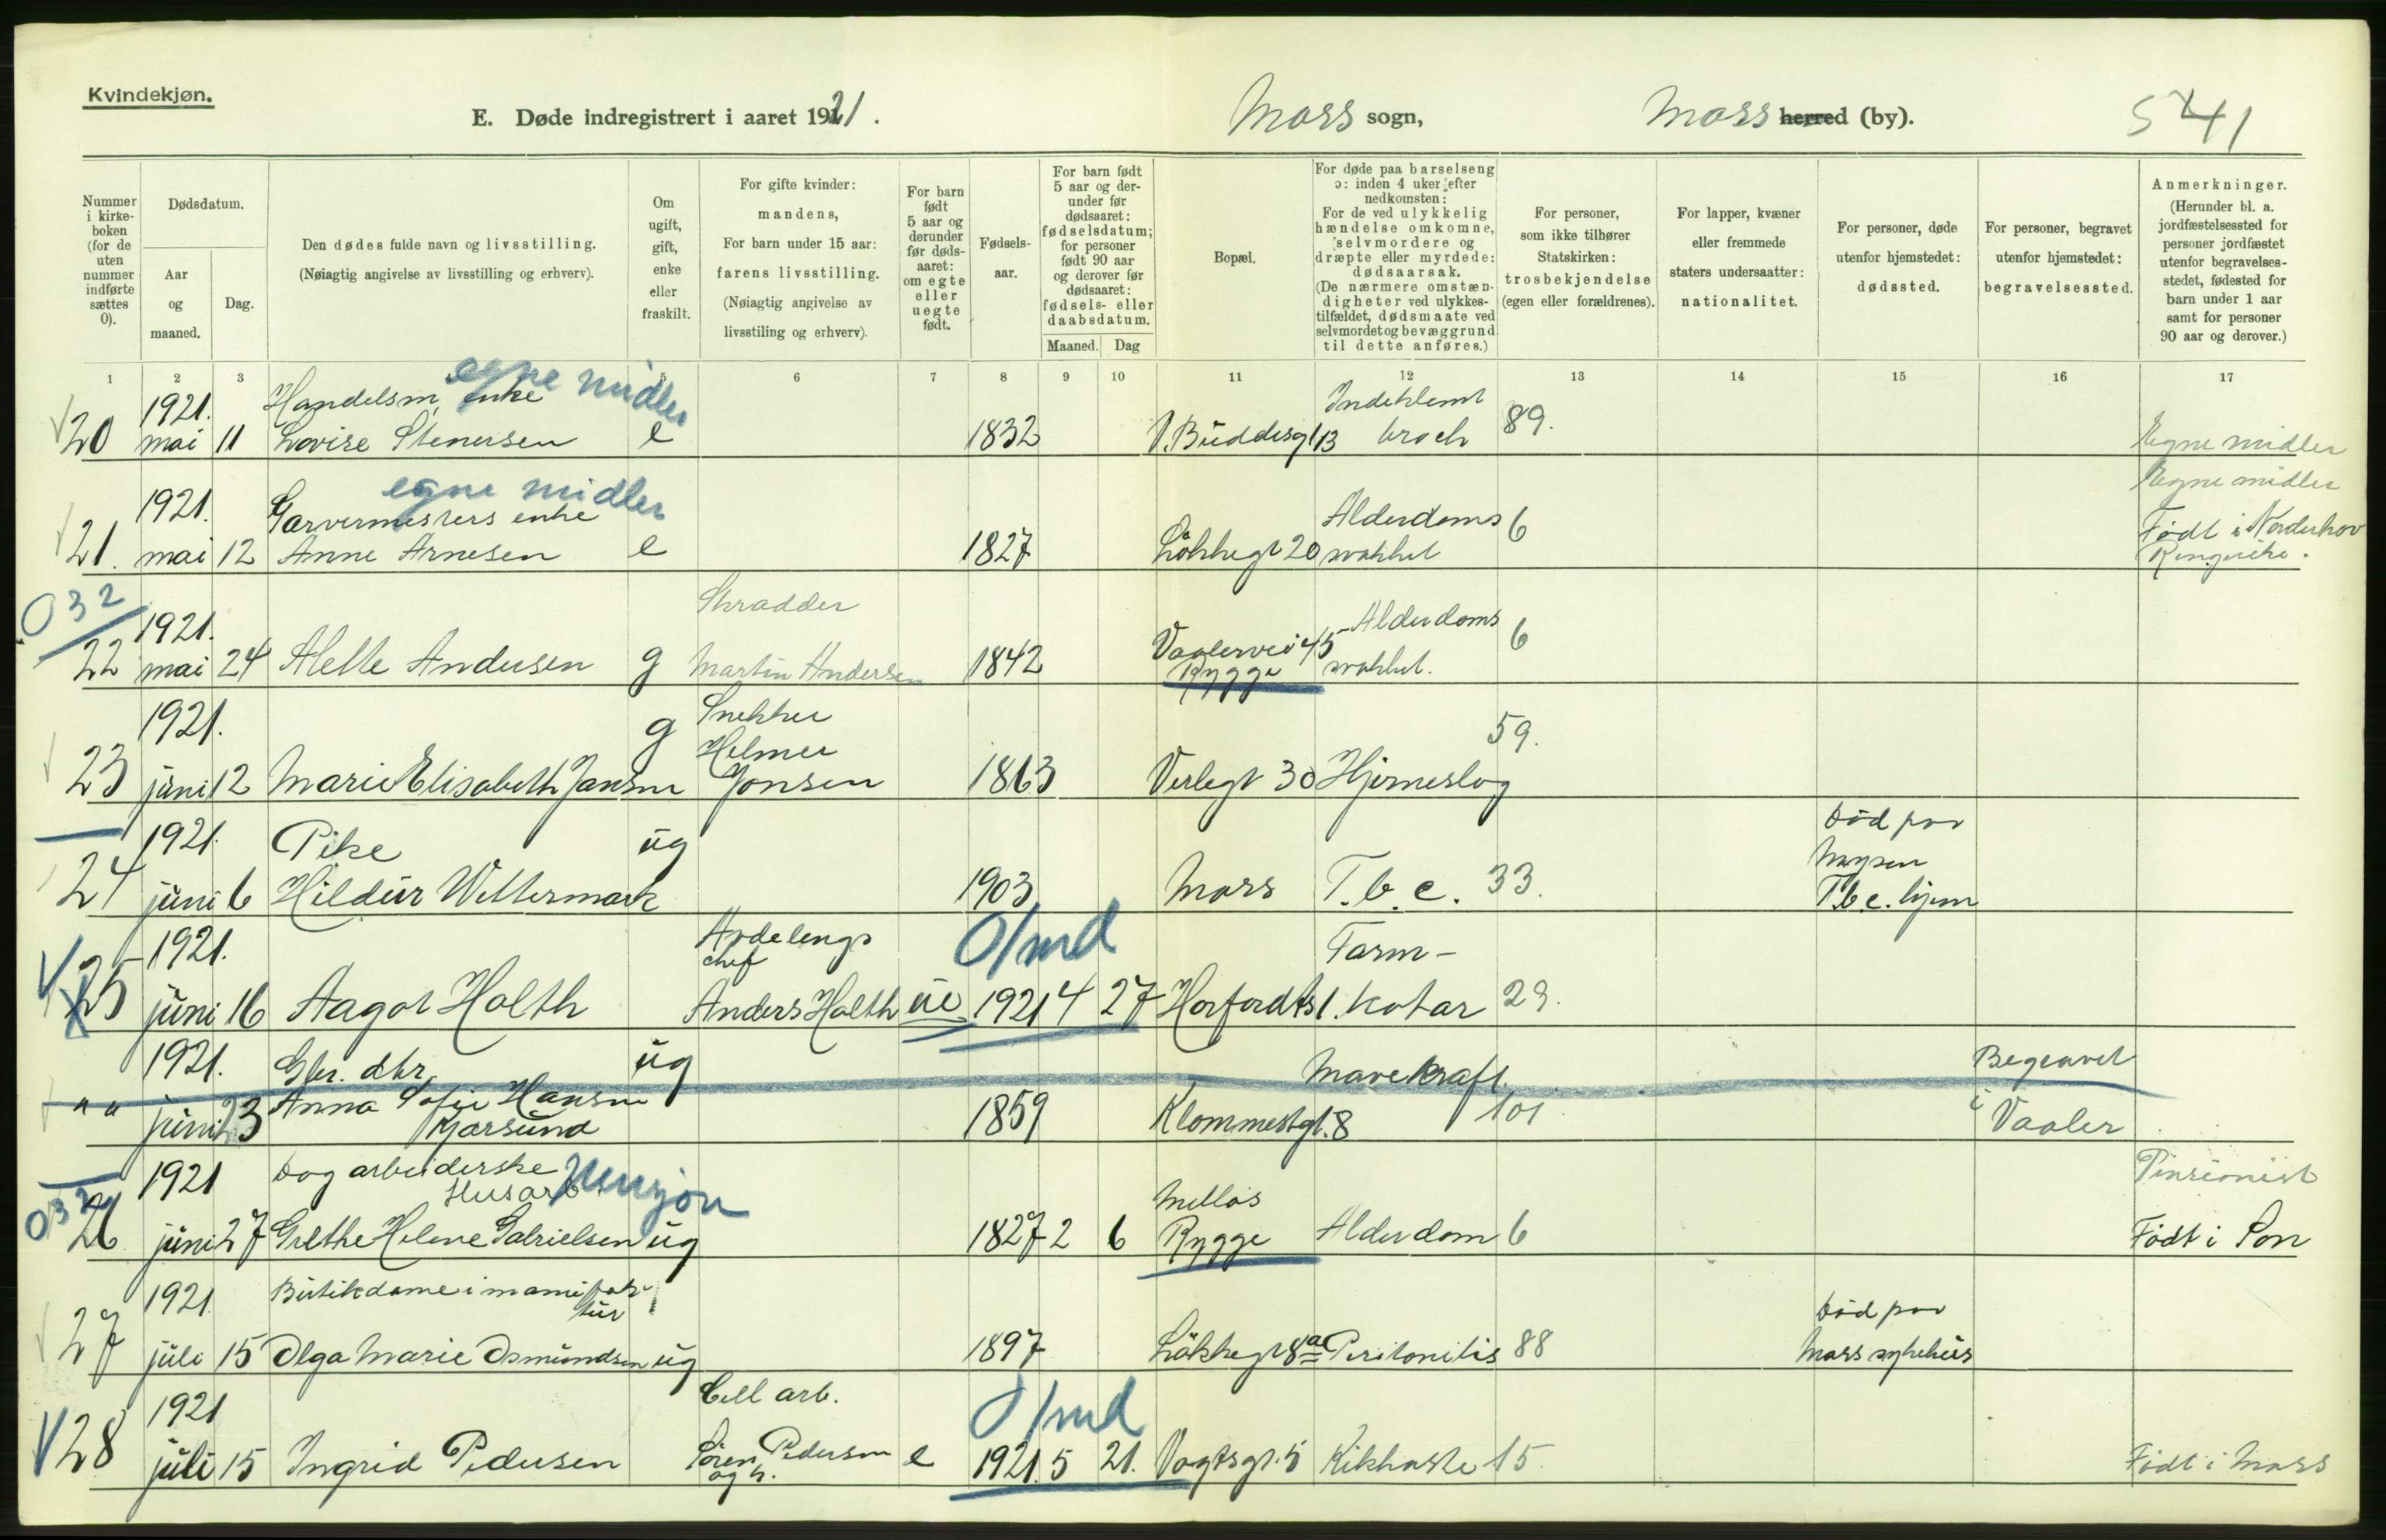 Kvindekjøn.
E. Døde indregistrert i aaret 1921.
Moss sogn,
Moss herred (by).
541
Nummer i kirkeboken (for de uten nummer indførte sættes 0).
Dødsdatum.
Aar og maaned.
Dag.
Den dødes fulde navn og livsstilling.
(Nøiagtig angivelse av livsstilling og erhverv).
Om ugift, gift, enke eller fraskilt.
For gifte kvinder: mandens,
For barn under 15 aar: farens livsstilling.
(Nøiagtig angivelse av livsstiling og erhverv).
For barn født 5 aar og derunder før dødsaaret: om egte eller uegte født.
Fødselsaar.
For barn født 5 aar og derunder før dødsaaret: fødselsdatum; for personer født 90 aar og derover før dødsaaret: fødsels- eller daabsdatum.
Maaned. Dag
Bopæl.
For døde paa barselseng ɔ: inden 4 uker efter nedkomsten:
For de ved ulykkelig hændelse omkomne, selvmordere og dræpte eller myrdede: dødsaarsak.
(De nærmere omstændigheter ved ulykkestilfældet, dødsmaate ved selvmordet og bevæggrund til dette anføres.)
For personer, som ikke tilhører Statskirken: trosbekjendelse (egen eller forældrenes).
For lapper, kvæner eller fremmede staters undersaatter: nationalitet.
For personer, døde utenfor hjemstedet: dødssted.
For personer, begravet utenfor hjemstedet: begravelsessted.
Anmerkninger.
(Herunder bl. a. jordfæstelsessted for personer jordfæstet utenfor begravelsesstedet, fødested for barn under 1 aar samt for personer 90 aar og derover.)
1 2 3 5 6 7 8 9 10 11 12 13 14 15 16 17
1921. Handelsm. enke egne midler Indeklemt
20 mai 11 Lovise Stenersen e 1832 V. Buddesgt 13 broch 89. Egne midler
egne midler Egne midler
1921. Garvermesters enke Alderdoms 6 Født i Norderhov
21. mai 12 Anne Arnesen e 1827 Løkkegt 20 svakhet Ringerike.
032
1921. Skrædder Alderdoms 6
22 mai 24 Alette Andersen g Martin Andersen 1842 Vaalervei 45 Rygge svakhet.
1921. g Snekker Helmer 59.
23 juni 12 Marie Elisabeth Jansen Jonsen 1863 Verlegt 30 Hjerneslag
1921. Pike ug Død paa Mysen
24 juni 6 Hildur Wettermark 1903 Moss T.b.c. 33. Tbc. hjem
1921. Avdelings chef 0/md Tarm-
25 juni 16 Aagot Holth Anders Holth ue 1921 4 27 1. katar 29.
1921. ug Mavekræft. Begravet
" " juni 23 Anna Sofie Hansen 1859 8 101 i Vaaler
1921 Dagarbeiderske Husarb. Pensjon Melløs Pensionist
032
26 juni 27 Grethe Helene Gabrielsen ug 1827 2 6 Rygge Alderdom 6 Født i Son
1921 Butikdame i manufaktur Død paa
27 juli 15 Olga Marie Osmundsen ug 1897 Løkkegt 8a Peritonitis 88 Moss sykehus
1921 Cell arb. 0/md
28 juli 15 Ingrid Pedersen Søren Pedersen og h. e 1921. 5 21. Vogtsgt. 5 Kikhoste 15. Født i Moss